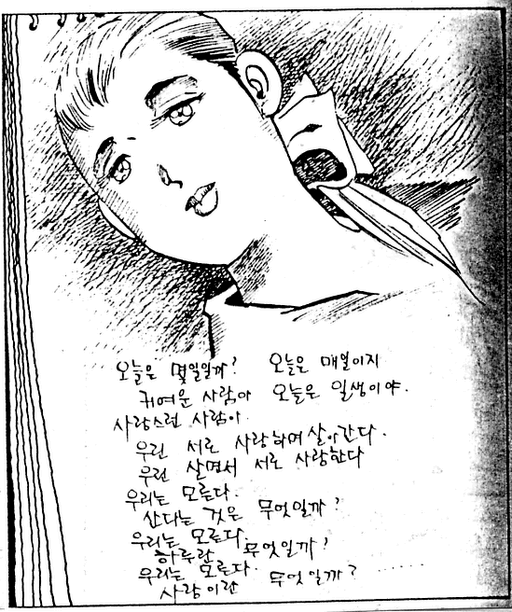 오늘은 몇일일까? 오늘은 매일이지
귀여운 사람아 오늘은 일생이야.
사랑스런 사람아.
우린 서로 사랑하며 살아간다.
우린 살면서 서로 사랑한다
우리는 모른다.
산다는 것은 무엇일까?
우리는 모른다.
하루란 무엇일까?
우리는 모른다.
사랑이란 무엇일까? ......